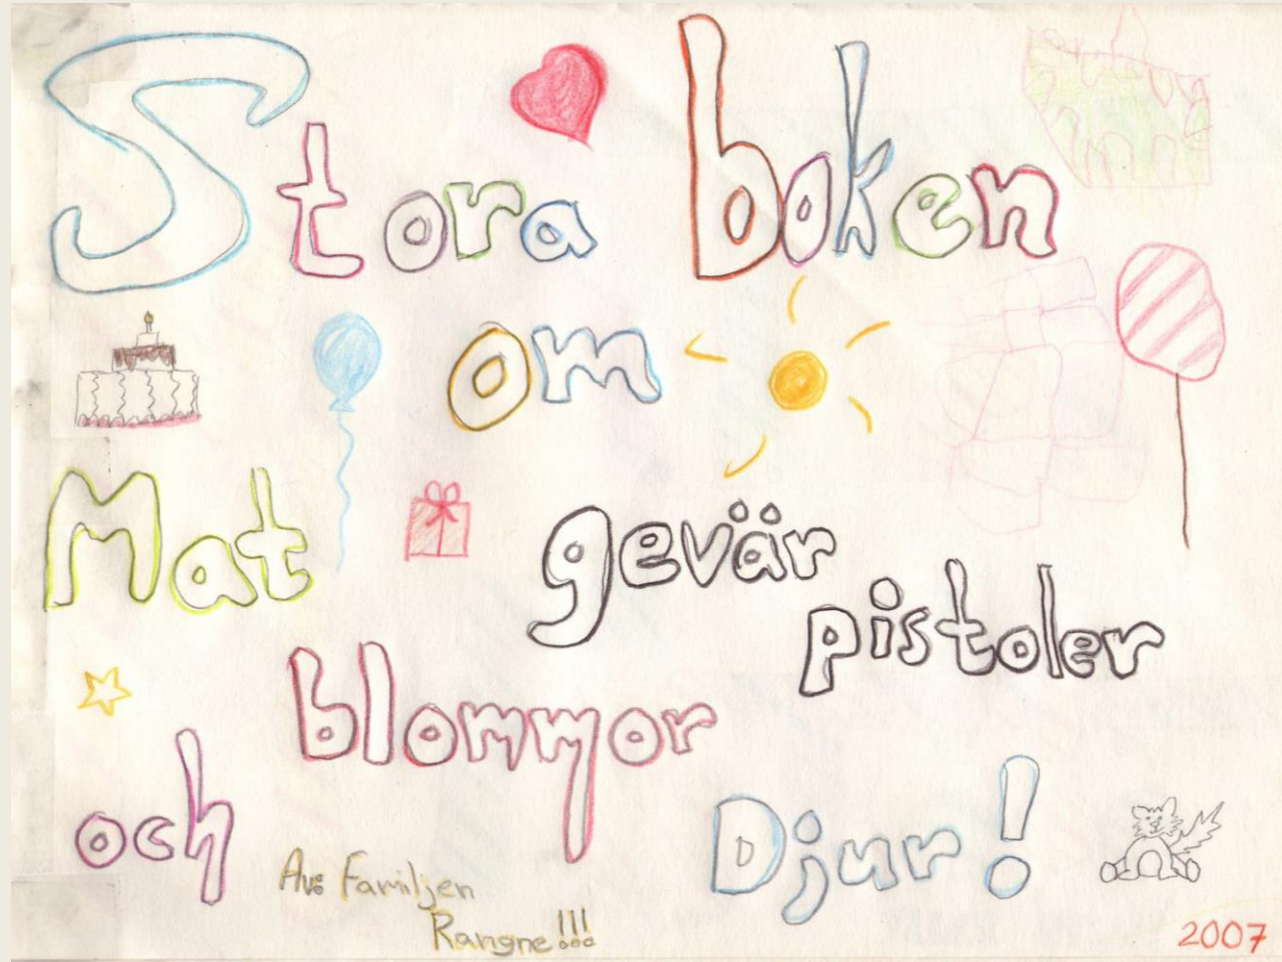 Stora boken
om
Mat gevär
pistoler
blommor
och Djur!
Av: Familjen
Rangne!!!
2007